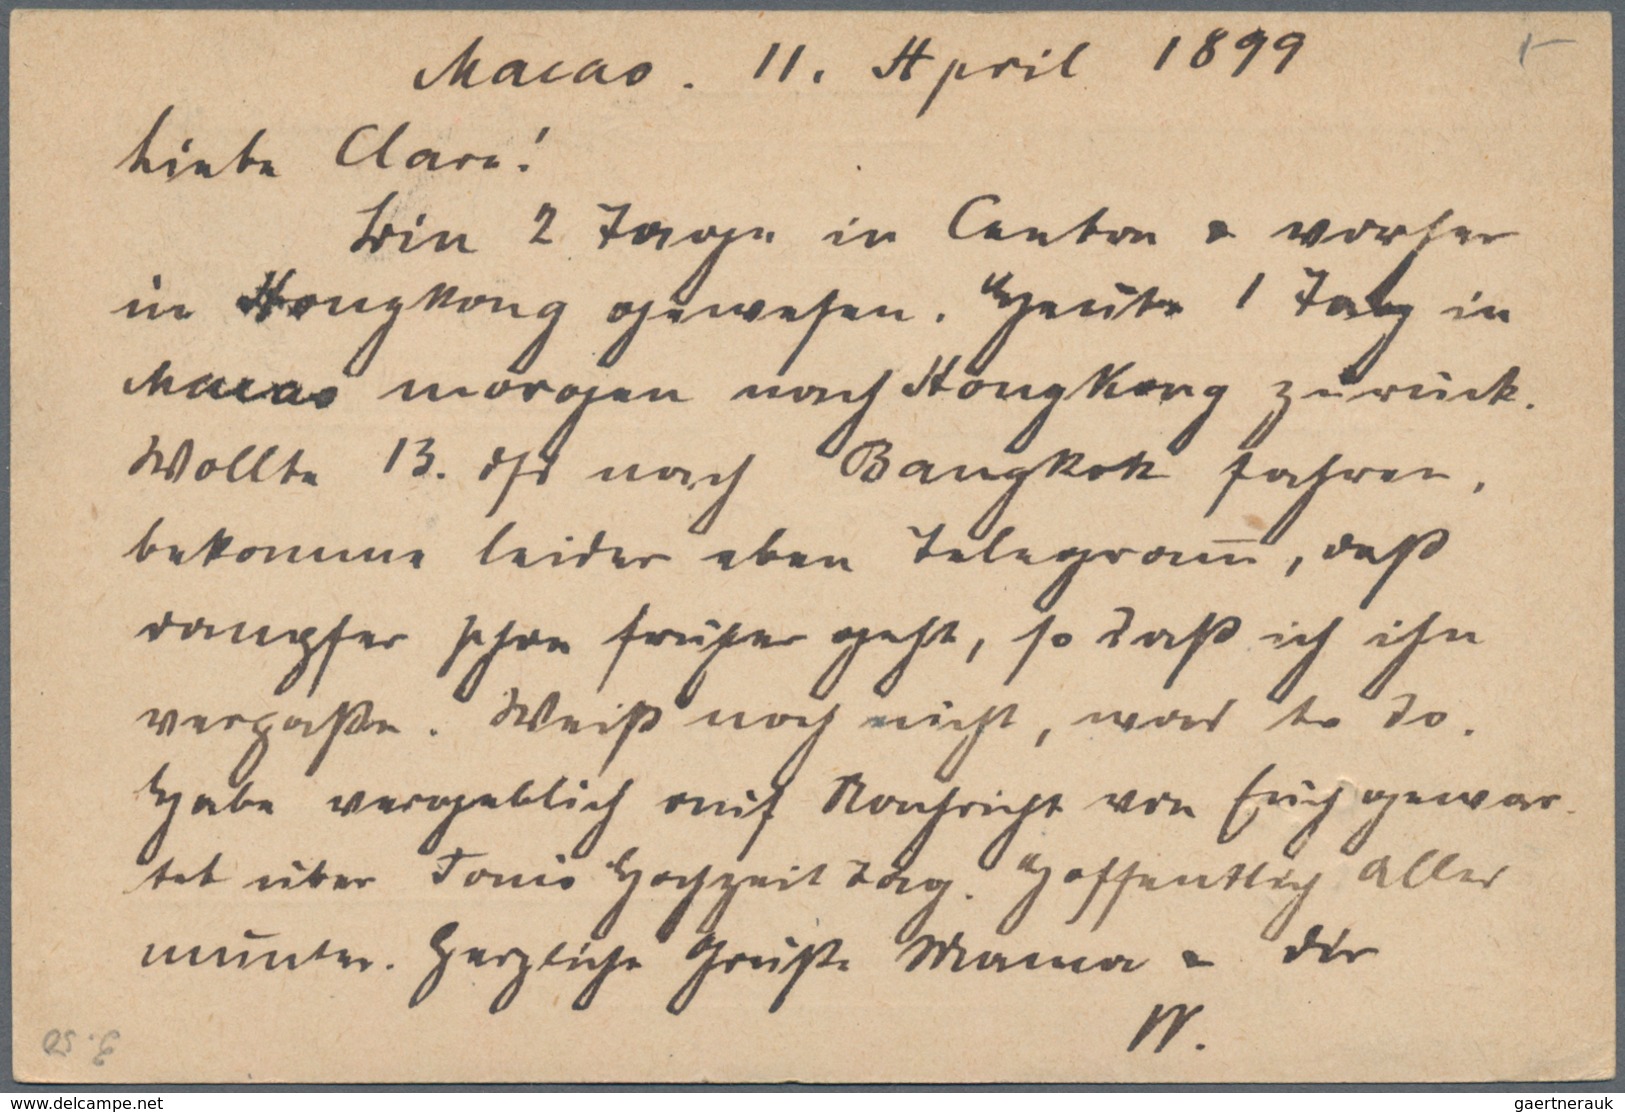 Macao. 11. April 1899
Liebe Clara!
bin 2 Tage in Canton & vorher
in Hongkong gewesen. Heute 1 Tag in
Macao morgen nach Hongkong zurück.
Wollte 13. dss nach Bangkok fahren,
bekomme leider eben Telegram̅, daß
dampfer schon früher geht, so daß ich ihn
verpaße. Weiß noch nicht, was to do.
Habe vergeblich auf Nachricht von Euch gewar-
tet über Tonis Hochzeitstag. Hoffentlich Alles
munter. Herzliche Grüße Mama & Dir
W.
www.delcampe.net
gaertnerauk